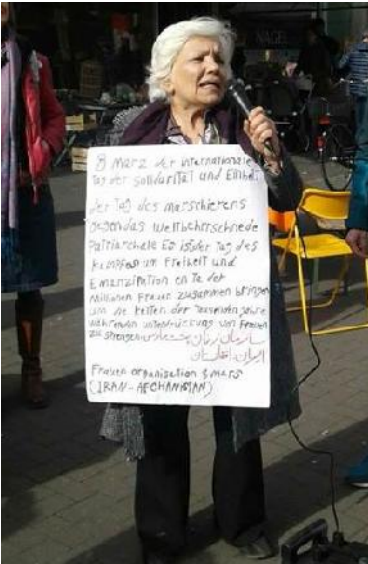 NAGEL
8 März der internationale
Tag der solidarität und Einheit
der Tag des marschierens
gegen das weltbeherrschende
Patriarchale Es ist der Tag des
kampfes um Freiheit und
Emanzipation ein Tag der
Millionen Frauen zusammen bringen
um die ketten der Tausenden Jahre
währenden unterdrückung von Frauen
zu
سازمان زنان هشت مارس
ایران افغانستان
Frauen organisation 8 mars
(IRAN-AFGHANISTAN)